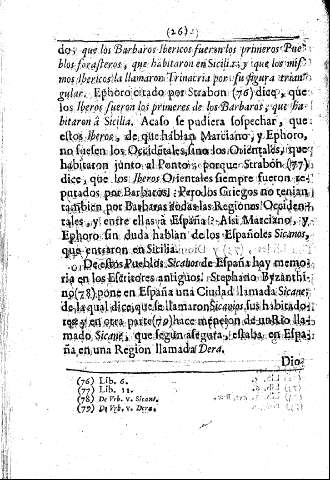 (26)
do, que los Barbaros Ibericos fueron los primeros Pue
blos forasteros, que habitaron en Sicilia; y que los mis
mos Ibericos la llamaron Trinacria por su figura trian
gular. Ephoro citado por Strabon (76) dice, que
los Iberos fueron los primeros de los Barbaros, que ha-
bitaron à Sicilia. Acaso se pudiera sospechar, que
estos Iberos, de que hablan Marciano, y Ephoro,
no fuesen los Occidentales, sino los Orientales, que
habitaron junto al Ponto; porque Strabon (77)
dice, que los Iberos Orientales siempre fueron re-
putados por Barbaros. Pero los Griegos no tenian
tambien por Barbaras todas las Regiones Occiden-
tales, y entre ellas à España? Asi Marciano, y
Ephoro sin duda hablan de los Españoles Sicanos,
que entraron en Sicilia.
De estos Pueblos Sicanos de España hay memo
ria en los Escritores antiguos. Stephano Byzanthi-
no (78) pone en España una Ciudad llamada Sicane,
de la qual dice, que se llamaron Sicanios sus habitado-
res: y en otra parte (79) hace mencion de un Rio lla-
mado Sicane, que segun asegura, estaba en Espa-
ña en una Region llamada Dera.
Dio
(76) Lib. 6.
(77) Lib. 11.
(78) De Vrb. v. Sicane.
(79) De Vrb. v. Dera.